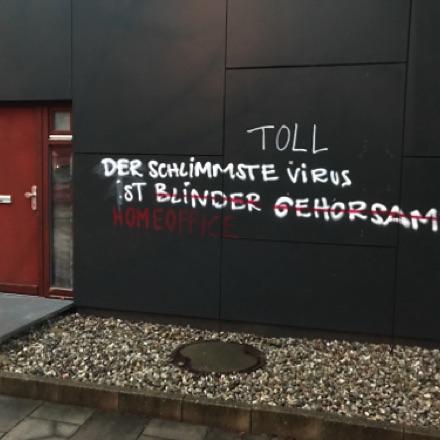 TOLL
DER SCHLIMMSTE VIRUS
iST BLINDER GEHORSAM
HOMEOFFICE